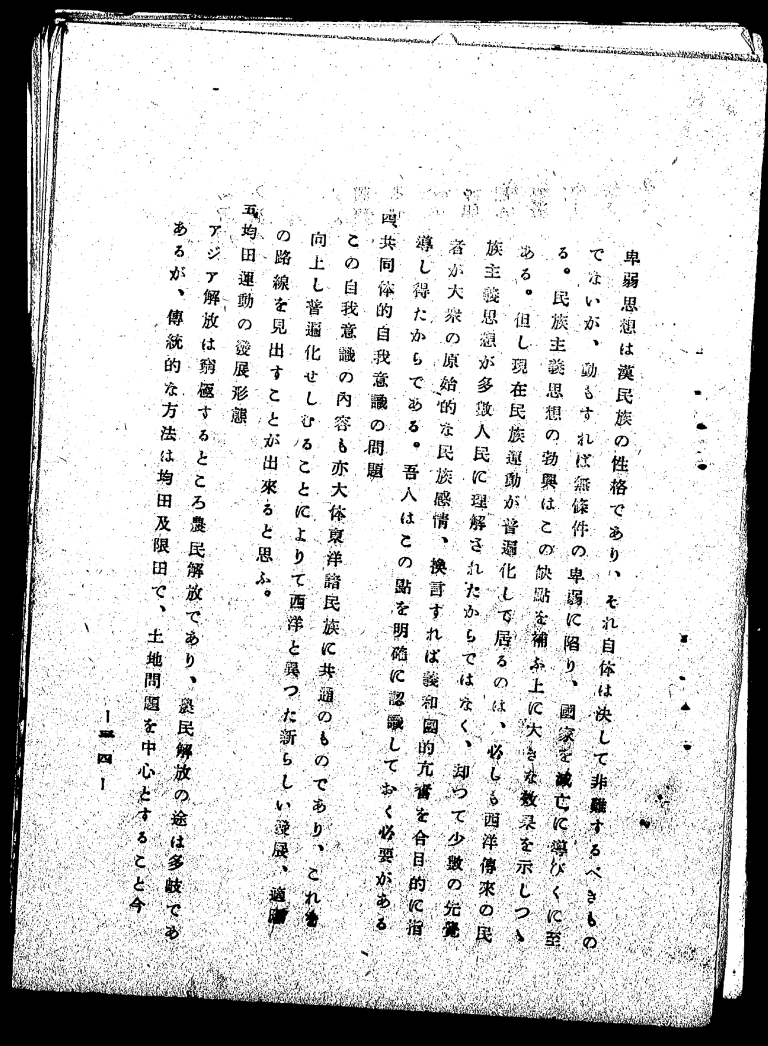 卑弱思想は漢民族の性格であり、それ自体は決して非難するべきもの
でないが、動もすれば無條件の卑弱に陷り、國家を滅亡に導びくに至
る。民族主義思想の勃興はこの缺點を補ふ上に大きな效果を示しつゝ
ある。但し現在民族運動が普遍化して居るのは、必しも西洋傳來の民
族主義思想が多數人民に理解されたからではなく、却つて少數の先覺
者が大衆の原始的な民族感情、換言すれば義和團的亢奮を合目的に指
導し得たからである。吾人はこの點を明確に認識しておく必要がある
四、共同体的自我意識の問題
この自我意識の内容も亦大体東洋諸民族に共通のものであり、これを
向上し普遍化せしむることによりて西洋と異つた新らしい發展、適
の路線を見出すことが出來ると思ふ。
五、均田運動の發展形態
アジア解放は窮極するところ農民解放であり、農民解放の途は多岐であ
あるが、傳統的な方法は均田及限田で、土地問題を中心とすること今